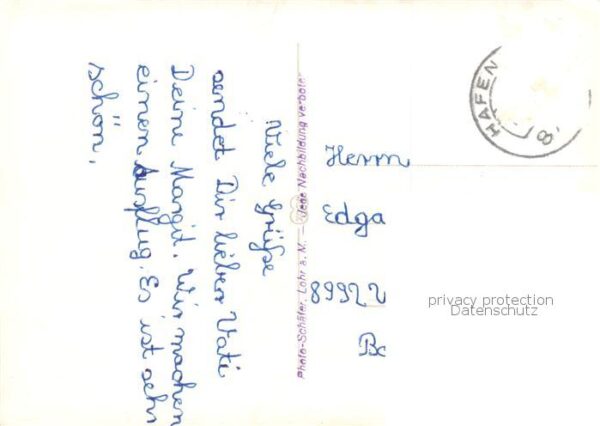 Viele Grüße
sendet Dir lieber Vati
Deine Margit. Wir machen
einen Ausflug. Es ist sehr
schön.
Photo-Schäfer, Lohr a. M. — Jede Nachbildung verboten
HAFEN
8
Herrn
Edga
8992
privacy protection
Datenschutz